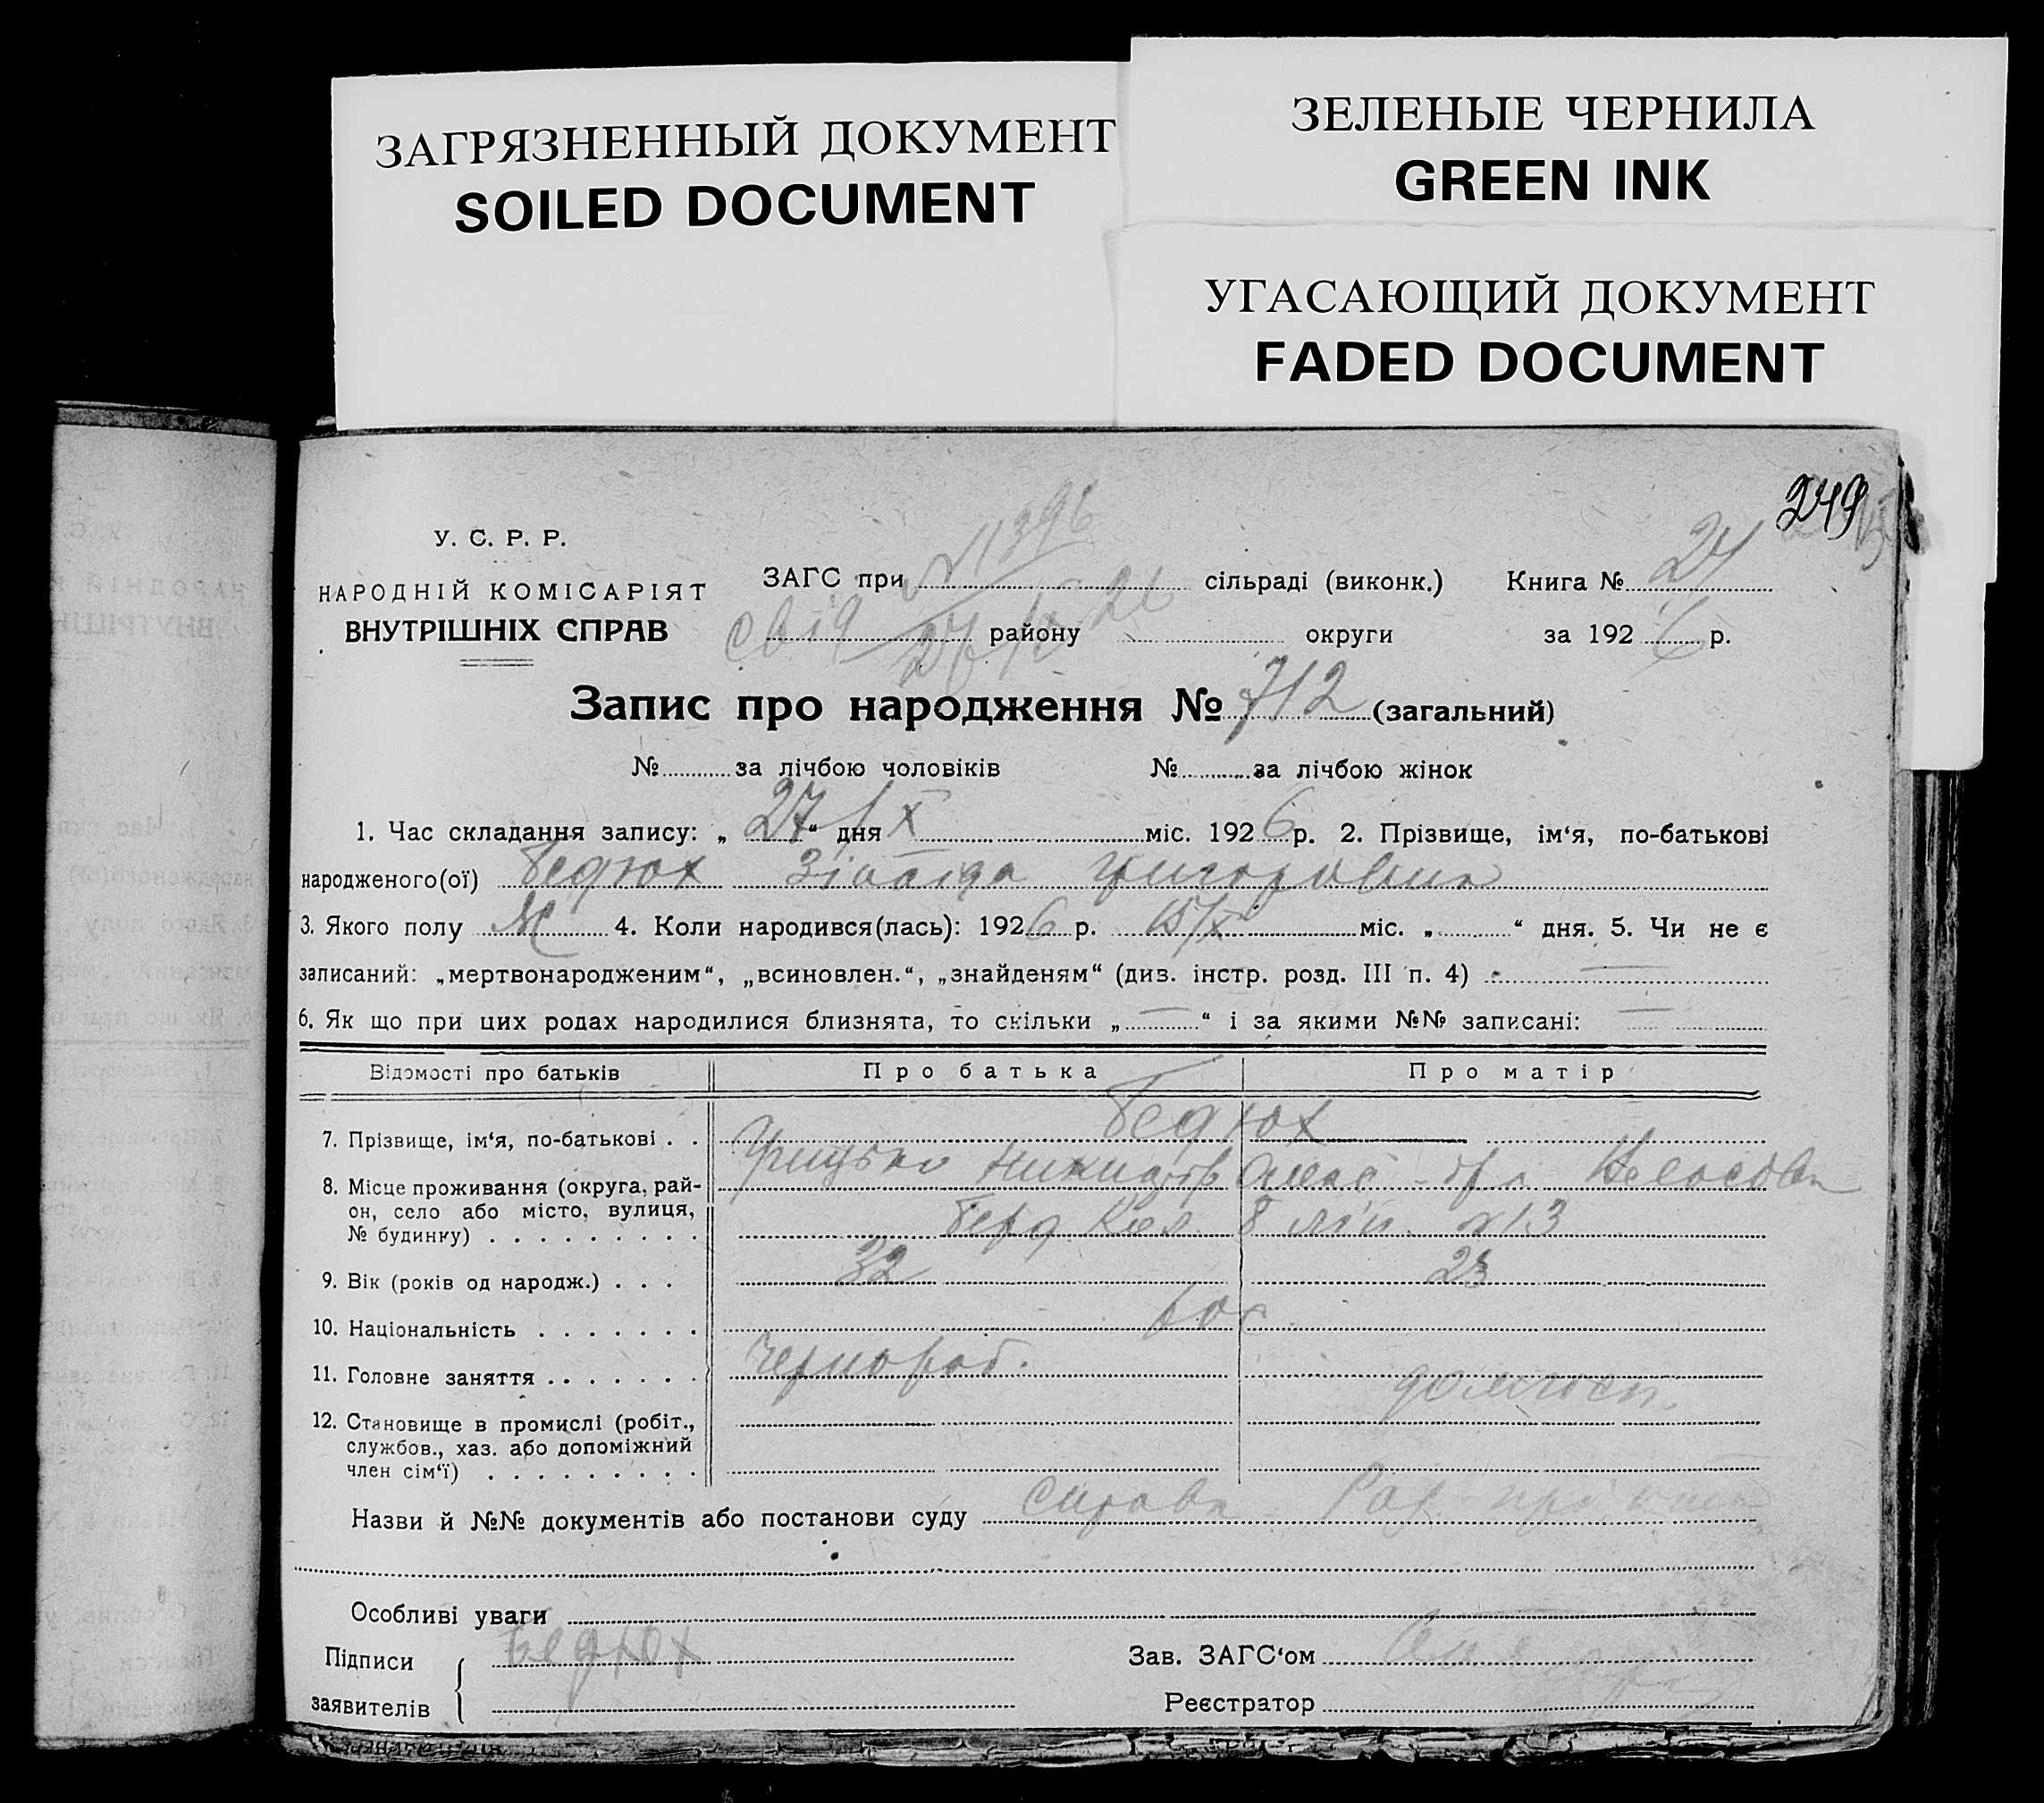 ЗАГРЯЗНЕННЫЙ ДОКУМЕНТ
SOILED DOCUMENT
ЗЕЛЕНЫЕ ЧЕРНИЛА
GREEN INK
УГАСАЮЩИЙ ДОКУМЕНТ
FADED DOCUMENT
249
У. С. Р. Р.
НАРОДНІЙ КОМІСАРІЯТ
ВНУТРІШНІХ СПРАВ
ЗАГС при № 1396 сільраді (виконк.) Книга № 24
свід 27/ІХ 26 району округи за 192 6 р.
Запис про народження № 712 (загальний)
№ за лічбою чоловіків № за лічбою жінок
1. Час складання запису: „ 27 “ дня ІХ міс. 192 6 р. 2. Прізвище, ім‘я, по-батькові
народженого(ої) Бедюх Зінаіда Григоровна
3. Якого полу Ж 4. Коли народився(лась): 192 6 р. 15/ІХ міс. „ “ дня. 5. Чи не є
записаний: „мертвонародженим“, „всиновлен.“, „знайденям“ (див. інстр. розд. III п. 4) —
6. Як що при цих родах народилися близнята, то скільки „ — “ і за якими №№ записані: —
Відомості про батьків Про батька Про матір
7. Прізвище, ім‘я, по-батькові . . Бедюх
Грицько
8. Місце проживання (округа, рай-
он, село або місто, вулиця,
№ будинку) . . . . . . . . . 8 лін. №13
9. Вік (років од народж.) . . . 32 23
10. Національність . . . . . . .
11. Головне заняття . . . . . . . Чернороб. домгосп.
12. Становище в промислі (робіт.,
службов., хаз. або допоміжний
член сім‘ї) . . . . . . . . .
Назви й №№ документів або постанови суду справка
Особливі уваги
Підписи Бедюх Зав. ЗАГС‘ом
заявителів Реєстратор